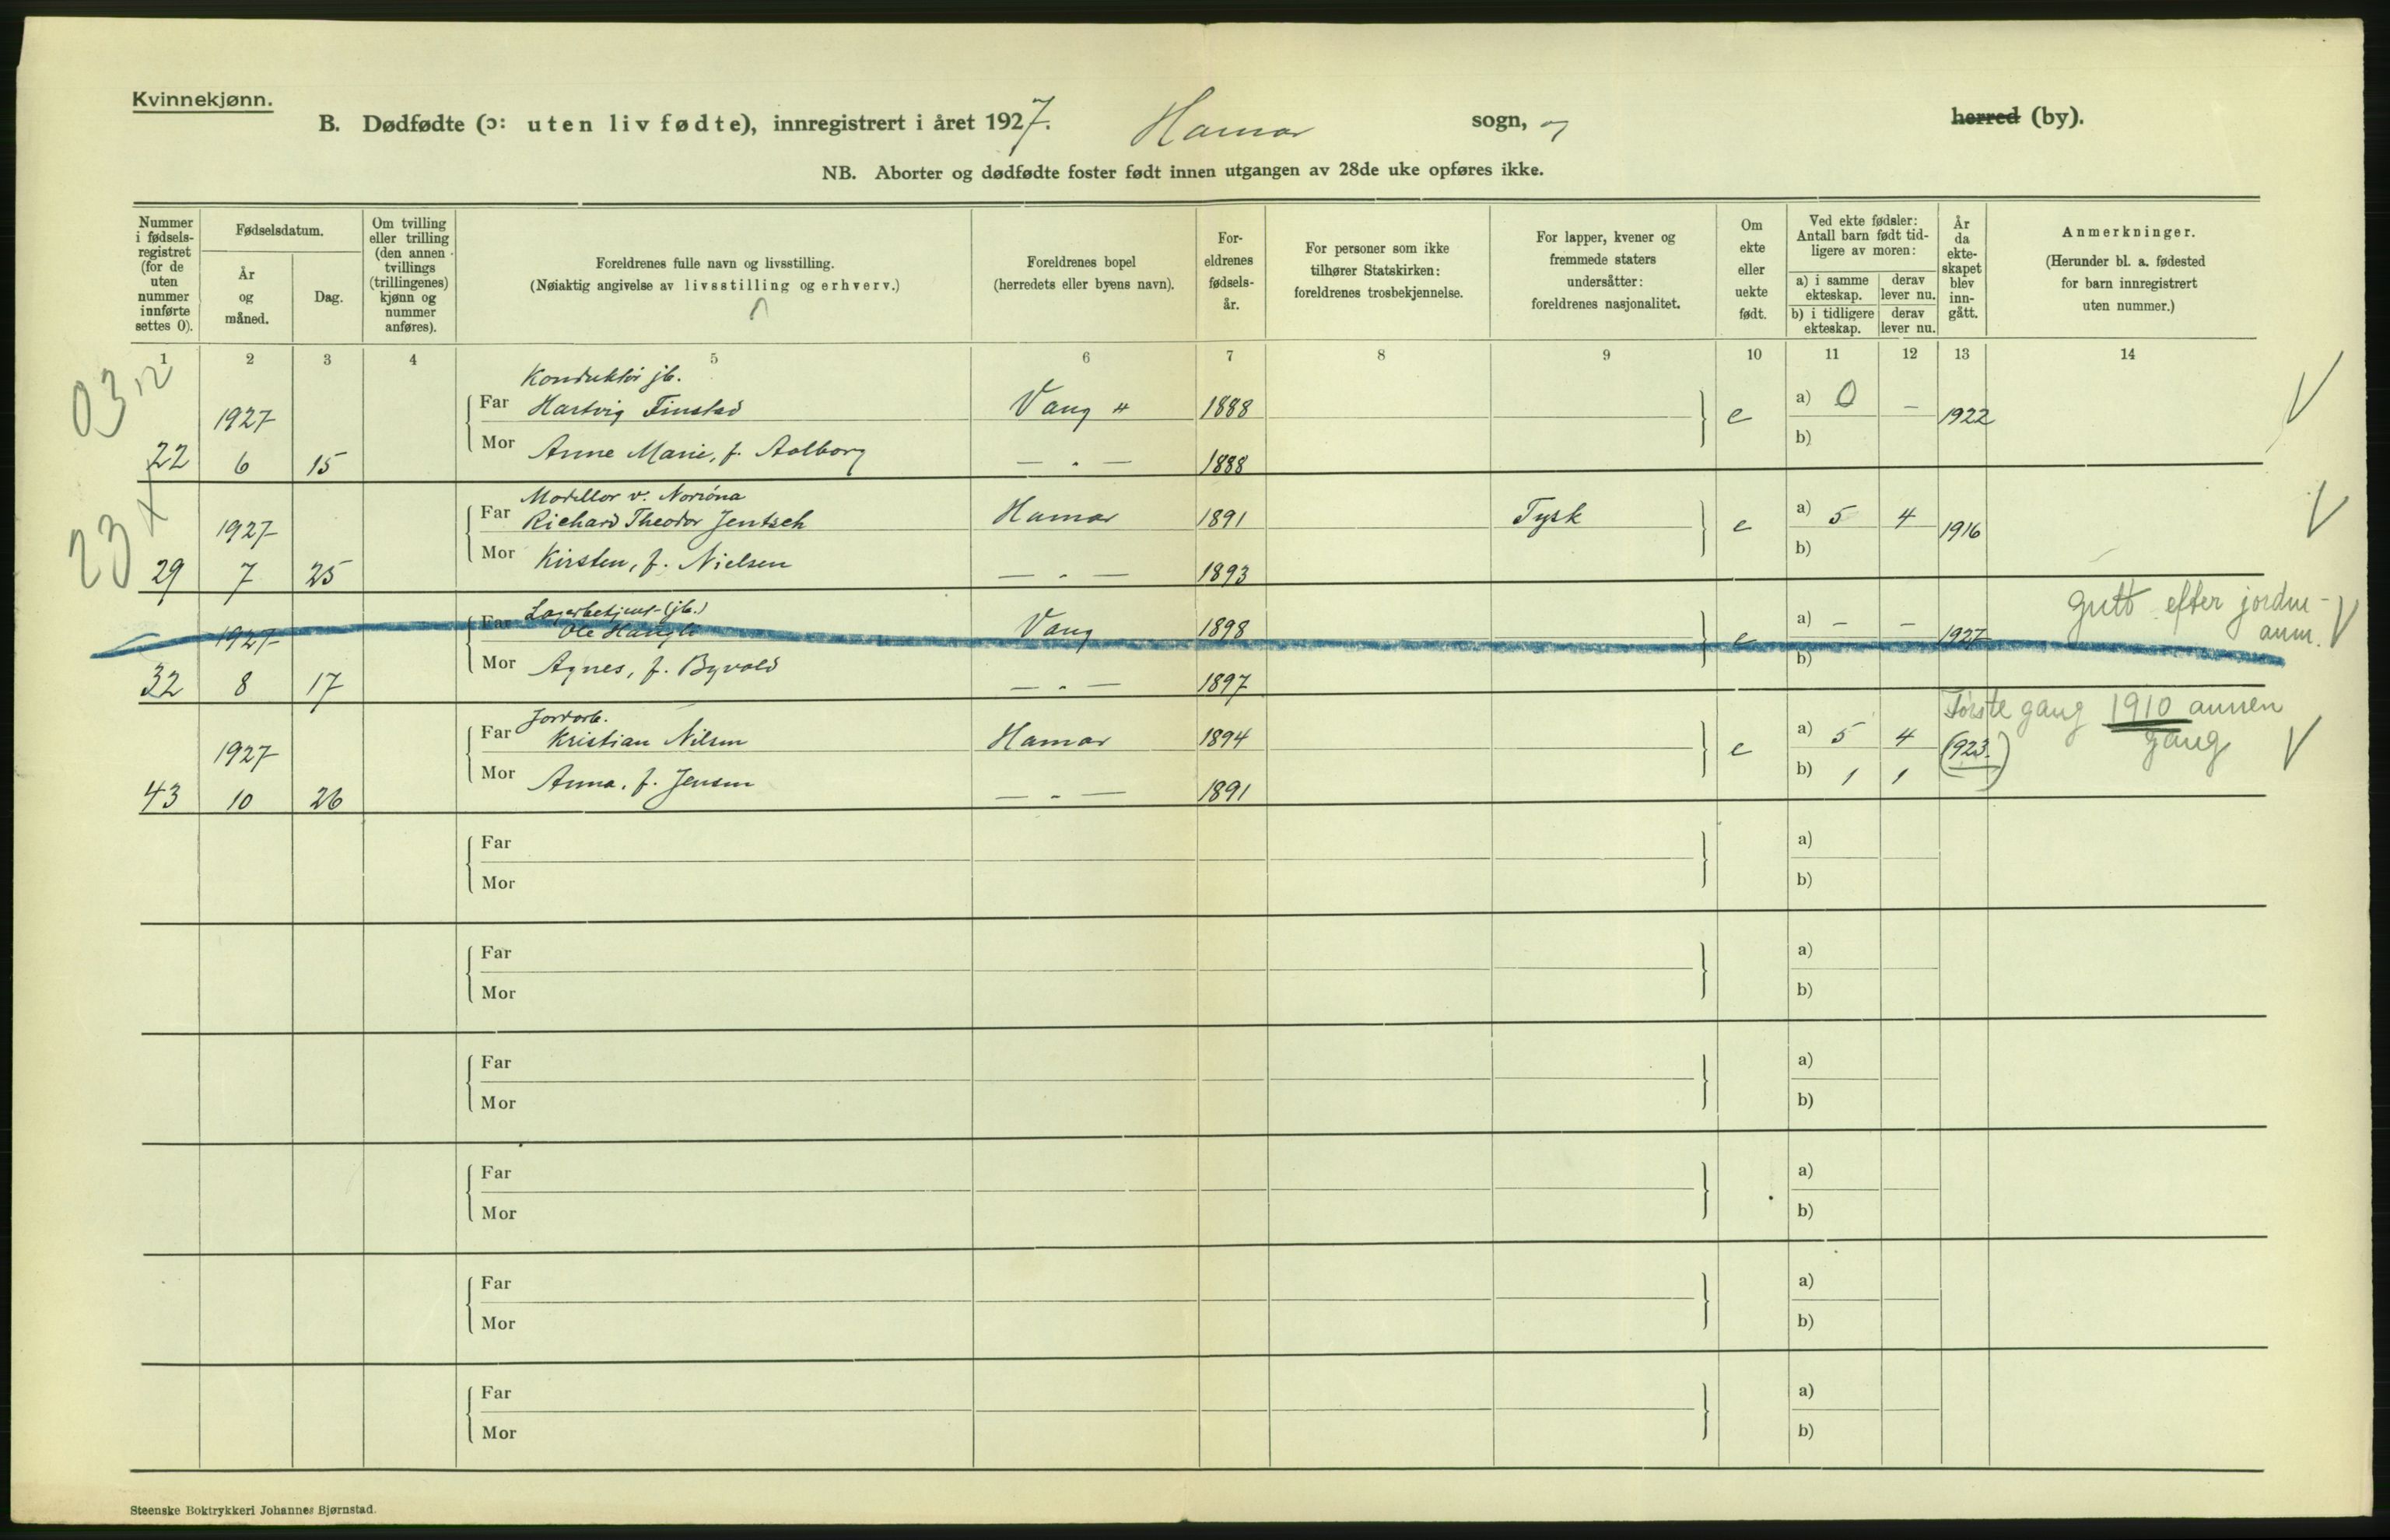 Kvinnekjønn.
B. Dødfødte (ɔ: uten liv fødte), innregistrert i året 1927. Hamar sogn, herred (by).
NB. Aborter og dødfødte foster født innen utgangen av 28de uke opføres ikke.
Nummer i fødsels-registret (for de uten nummer innførte settes 0).
Fødselsdatum.
År og måned.
Dag.
Om tvilling eller trilling (den annen tvillings (trillingenes) kjønn og nummer anføres).
Foreldrenes fulle navn og livsstilling.
(Nøiaktig angivelse av livsstilling og erhverv.)
Foreldrenes bopel
(herredets eller byens navn).
For-eldrenes fødsels-år.
For personer som ikke tilhører Statskirken: foreldrenes trosbekjennelse.
For lapper, kvener og fremmede staters undersåtter: foreldrenes nasjonalitet.
Om ekte eller uekte født.
Ved ekte fødsler: Antall barn født tid-ligere av moren:
a) i samme ekteskap. derav lever nu.
b) i tidligere ekteskap. derav lever nu.
År da ekte-skapet blev inn-gått.
Anmerkninger.
(Herunder bl. a. fødested for barn innregistrert uten nummer.)
1 2 3 4 5 6 7 8 9 10 11 12 13 14
03 12
Konduktør jb.
1927 Far Hartvig Finstad Vang " 1888 e a) 0 – 1922 V
22 6 15 Mor Anne Marie, f. Aalborg — " — 1888 b)
23 X
Modellør v. Norrøna
1927 Far Richard Theodor Jentsch Hamar 1891 Tysk e a) 5 4 1916 V
29 7 25 Mor Kirsten, f. Nielsen — " — 1893 b)
(jb.)
1927 Far Ole Vang 1898 e a) – – 1927 gutt efter jordm- anm. V
32 8 17 Mor Agnes, f. Byvold — " — 1897 b)
Jordarb.
1927 Far Kristian Nilsen Hamar 1894 e a) 5 4 (1923.) Første gang 1910 annen gang V
43 10 26 Mor Anna, f. Jensen — " — 1891 b) 1 1
Far a)
Mor b)
Far a)
Mor b)
Far a)
Mor b)
Far a)
Mor b)
Far a)
Mor b)
Far a)
Mor b)
Steenske Boktrykkeri Johannes Bjørnstad.